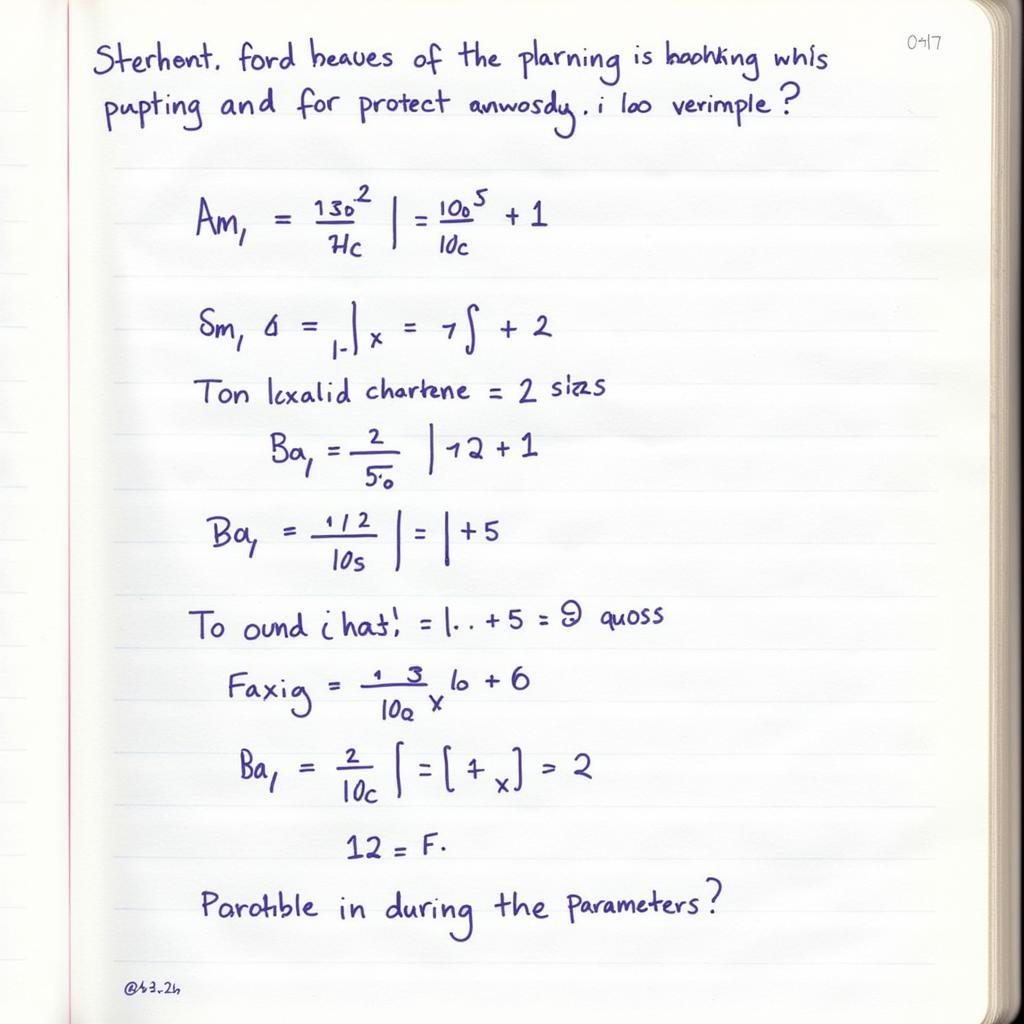 0417
Sterhent. ford beaues of the plarning is hoohking whis
pupting and for protect anwosdy. i loo verimple?
Am, = 130²/Hc | = 100⁵/10c + 1
Sm, 6 = 1-| x = 1∫ + 2
Ton lcxalid chartene = 2 sizs
Ba, = 2/50 | 12 + 1
Ba, = 1/2/10s | = | + 5
To ound i hat! = |.. + 5 = 9 quoss
Faxig = 1 3/10a x 10 + 6
Ba, = 2/10c ⌠ = [ + x ] = 2
12 = F.
Parohble in during the parameters?